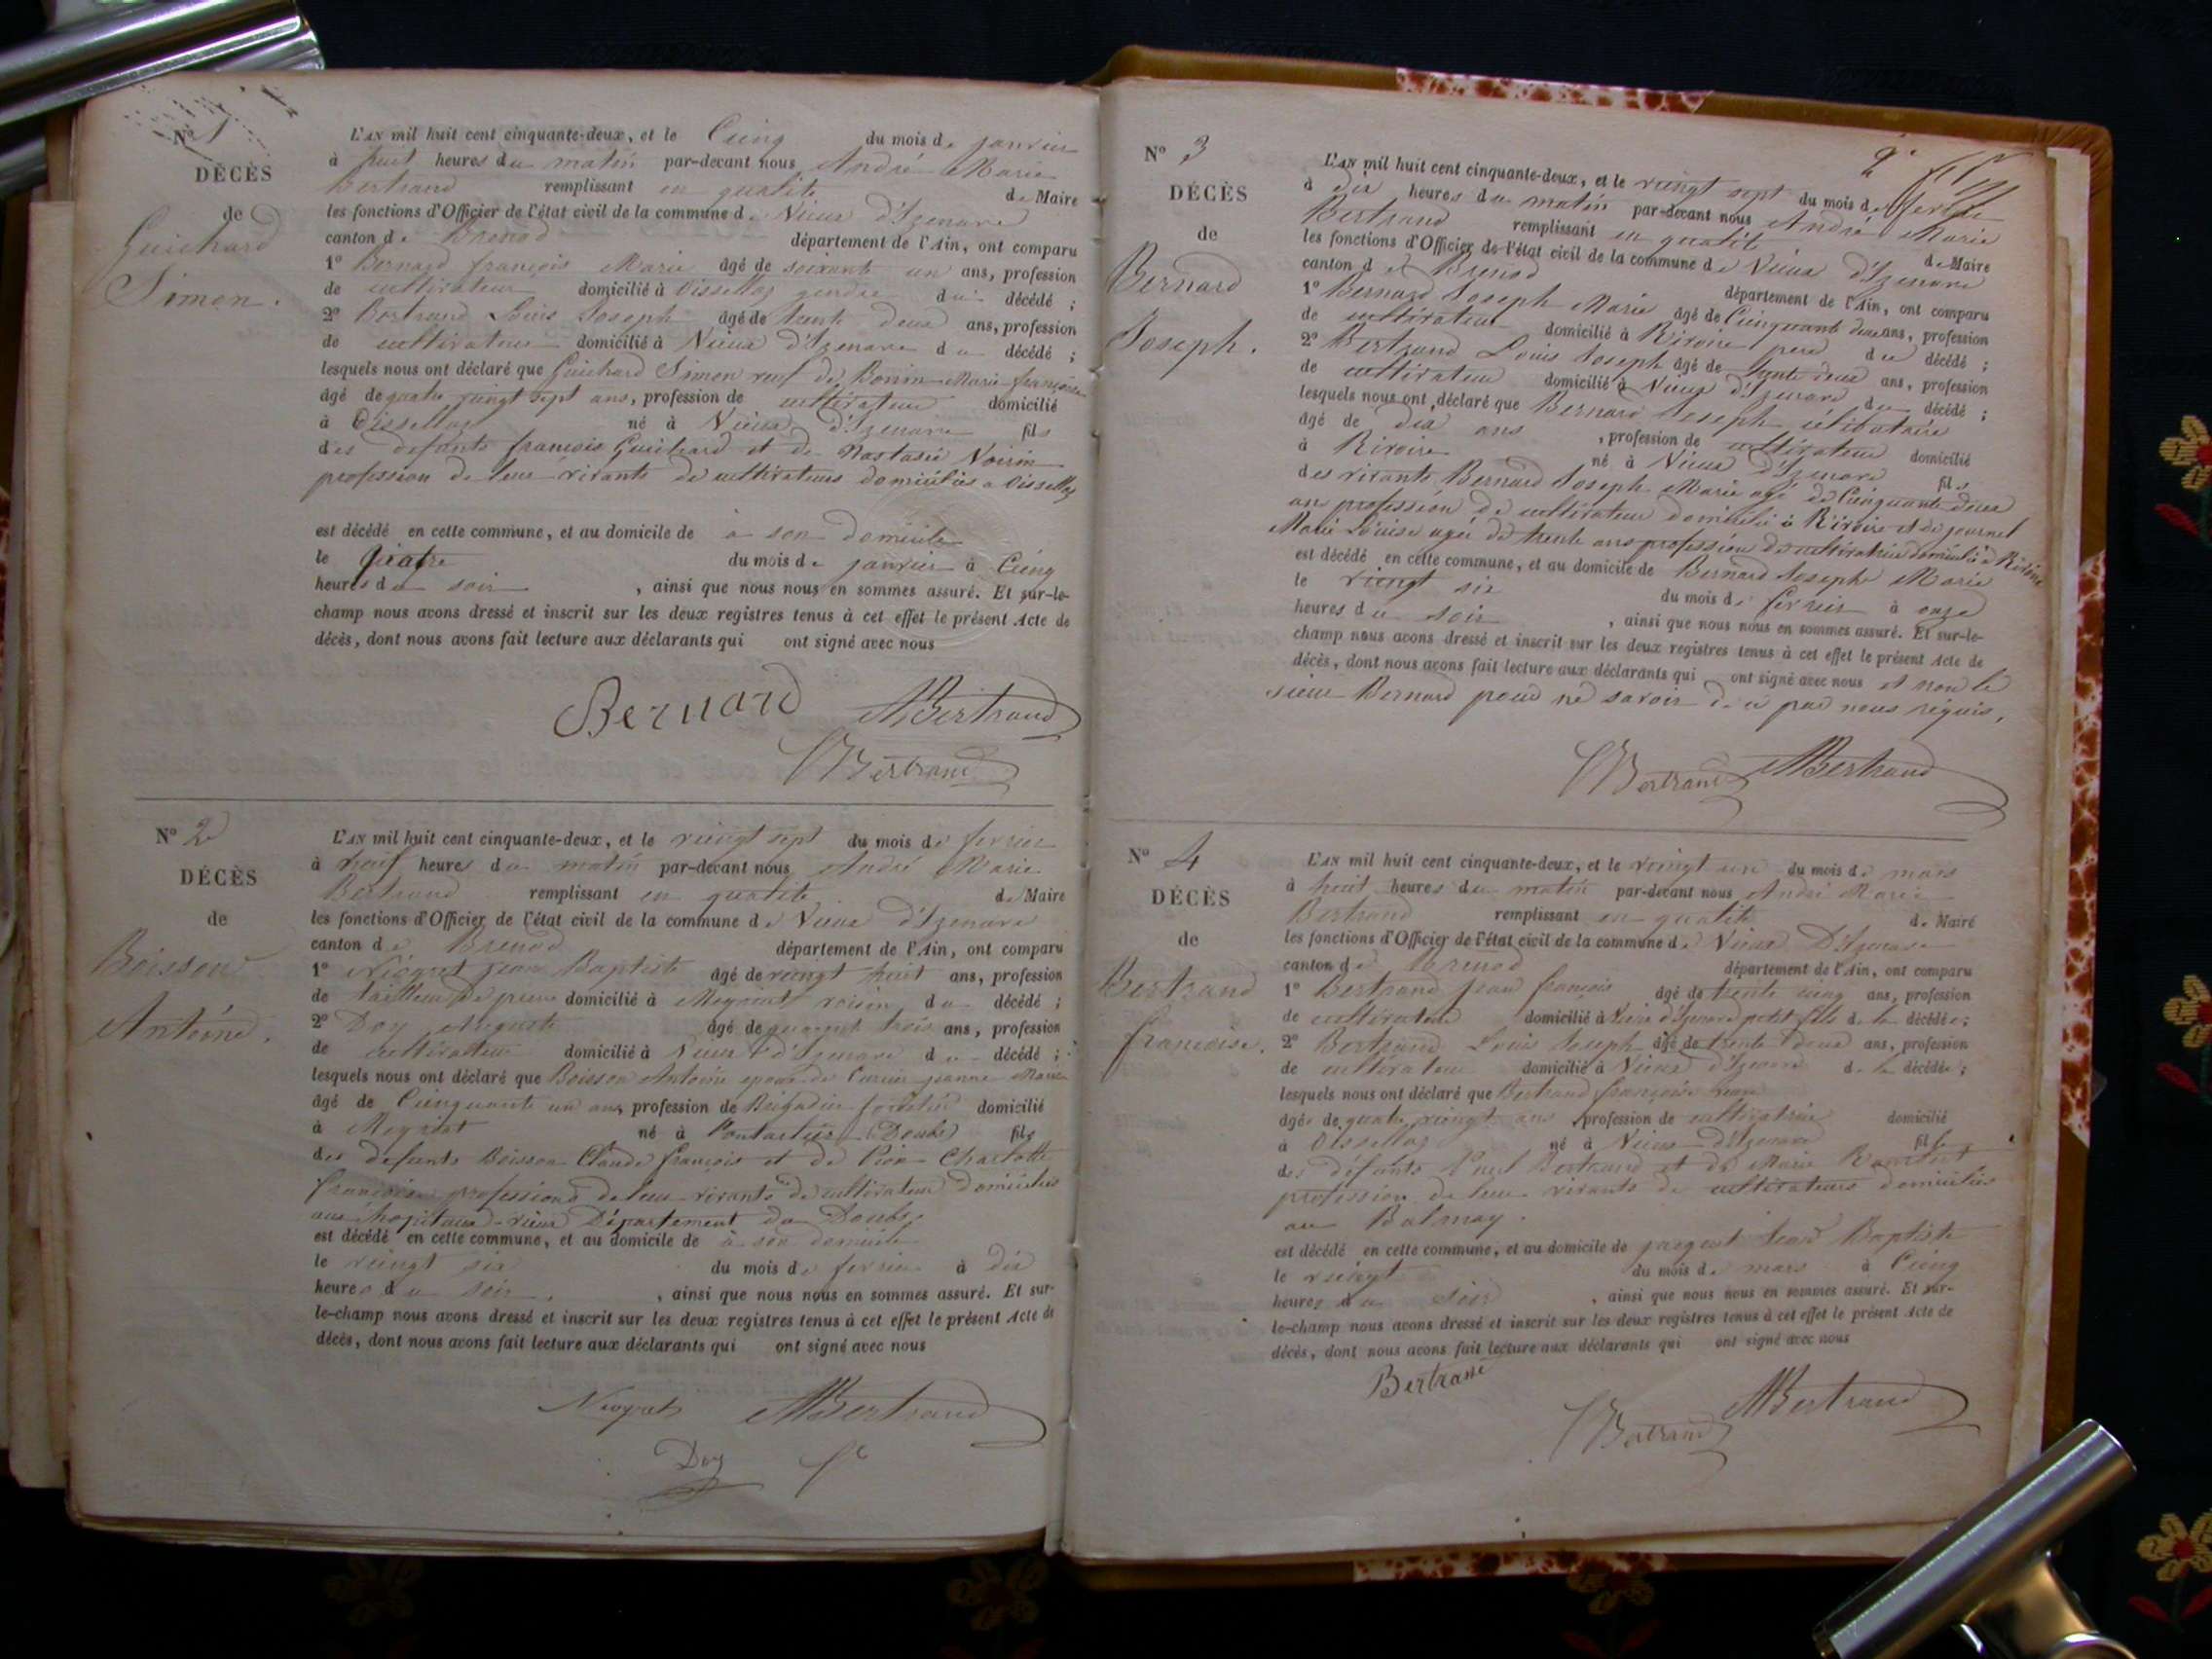 N° 1
DÉCÈS
de
Guichard
Simon.
L'AN mil huit cent cinquante-deux, et le Cinq du mois de janvier
à huit heures du matin par-devant nous André Marie
Bertrand remplissant en qualité de Maire
les fonctions d'Officier de l'état civil de la commune de Vieux d'Izenave
canton de Brenod département de l'Ain, ont comparu
1° Bernard françois Marie âgé de soixante un ans, profession
de cultivateur domicilié à Oissellaz gendre du décédé ;
2° Bertrand Louis Joseph âgé de trente deux ans, profession
de cultivateur domicilié à Vieux d'Izenave du décédé ;
lesquels nous ont déclaré que Guichard Simon veuf de Bonin Marie françoise
âgé de quatre vingt sept ans, profession de cultivateur domicilié
à Oissellaz né à Vieux d'Izenave fils
des defunts françois Guichard et de Nastasie
profession de leur vivants de cultivateurs domiciliés a Oissellaz
est décédé en cette commune, et au domicile de à son domicile
le quatre du mois de janvier à Cinq
heures du soir , ainsi que nous nous en sommes assuré. Et sur-le-
champ nous avons dressé et inscrit sur les deux registres tenus à cet effet le présent Acte de
décès, dont nous avons fait lecture aux déclarants qui ont signé avec nous
Bernard ABertrand
Bertrand
N° 2
DÉCÈS
de
Boisson
Antoine.
L'AN mil huit cent cinquante-deux, et le vingt sept du mois de fevrier
à neuf heures du matin par-devant nous André Marie
Bertrand remplissant en qualité de Maire
les fonctions d'Officier de l'état civil de la commune de Vieux d'Izenave
canton de Brenod département de l'Ain, ont comparu
1° Niogret jean Baptiste âgé de vingt huit ans, profession
de tailleur de pierre domicilié à Meyriat voisin du décédé ;
2° Doy Auguste âgé de quarante trois ans, profession
de cultivateur domicilié à Vieux d'Izenave du décédé ;
lesquels nous ont déclaré que Boisson Antoine epoux de jeanne Marie
âgé de Cinquante un ans, profession de Brigadier forestier domicilié
à Meyriat né à Pontarlier (Doubs) fils
des defunts Boisson Claude françois et de Charlotte
françoise professions de leur vivants de cultivateur domiciliés
aux hopitaux-vieux Département du Doubs
est décédé en cette commune, et au domicile de à son domicile
le vingt six du mois de fevrier à dix
heures du soir , ainsi que nous nous en sommes assuré. Et sur-
le-champ nous avons dressé et inscrit sur les deux registres tenus à cet effet le présent Acte de
décès, dont nous avons fait lecture aux déclarants qui ont signé avec nous
Niogret ABertrand
Doy
2e
N° 3
DÉCÈS
de
Bernard
Joseph.
L'AN mil huit cent cinquante-deux, et le vingt sept du mois de fevrier
à dix heures du matin par-devant nous André Marie
Bertrand remplissant en qualité de Maire
les fonctions d'Officier de l'état civil de la commune de Vieux d'Izenave
canton de Brenod département de l'Ain, ont comparu
1° Bernard Joseph Marie âgé de Cinquante deux ans, profession
de cultivateur domicilié à Rivoire pere du décédé ;
2° Bertrand Louis Joseph âgé de trente deux ans, profession
de cultivateur domicilié à Vieux d'Izenave du décédé ;
lesquels nous ont déclaré que Bernard Joseph célibataire
âgé de dix ans , profession de cultivateur domicilié
à Rivoire né à Vieux d'Izenave fils
des vivants Bernard Joseph Marie agé de Cinquante deux
ans profession de cultivateur domicilié à Rivoire et de journet
Marie Louise agée de trente ans profession de cultivatrice domicilié à Rivoire
est décédé en cette commune, et au domicile de Bernard Joseph Marie
le vingt six du mois de fevrier à onze
heures du soir , ainsi que nous nous en sommes assuré. Et sur-le-
champ nous avons dressé et inscrit sur les deux registres tenus à cet effet le présent Acte de
décès, dont nous avons fait lecture aux déclarants qui ont signé avec nous et non le
sieur Bernard pour ne savoir de ce par nous requis.
Bertrand ABertrand
N° 4
DÉCÈS
de
Bertrand
françoise.
L'AN mil huit cent cinquante-deux, et le vingt un du mois de mars
à huit heures du matin par-devant nous André Marie
Bertrand remplissant en qualité de Maire
les fonctions d'Officier de l'état civil de la commune de Vieux D'Izenave
canton de Brenod département de l'Ain, ont comparu
1° Bertrand jean françois âgé de trente cinq ans, profession
de cultivateur domicilié à Vieux d'Izenave petit fils de la décédée ;
2° Bertrand Louis Joseph âgé de trente deux ans, profession
de cultivateur domicilié à Vieux d'Izenave de la décédée ;
lesquels nous ont déclaré que Bertrand françoise
âgée de quatre vingt ans profession de cultivatrice domicilié
à Oissellaz né à Vieux d'Izenave fille
des défunts Paul Bertrand et de Marie
profession de leur vivants de cultivateurs domiciliés
au Balmay.
est décédé en cette commune, et au domicile de jean Baptiste
le vingt du mois de mars à Cinq
heures du soir , ainsi que nous nous en sommes assuré. Et sur-
le-champ nous avons dressé et inscrit sur les deux registres tenus à cet effet le présent Acte de
décès, dont nous avons fait lecture aux déclarants qui ont signé avec nous
Bertrand
Bertrand ABertrand